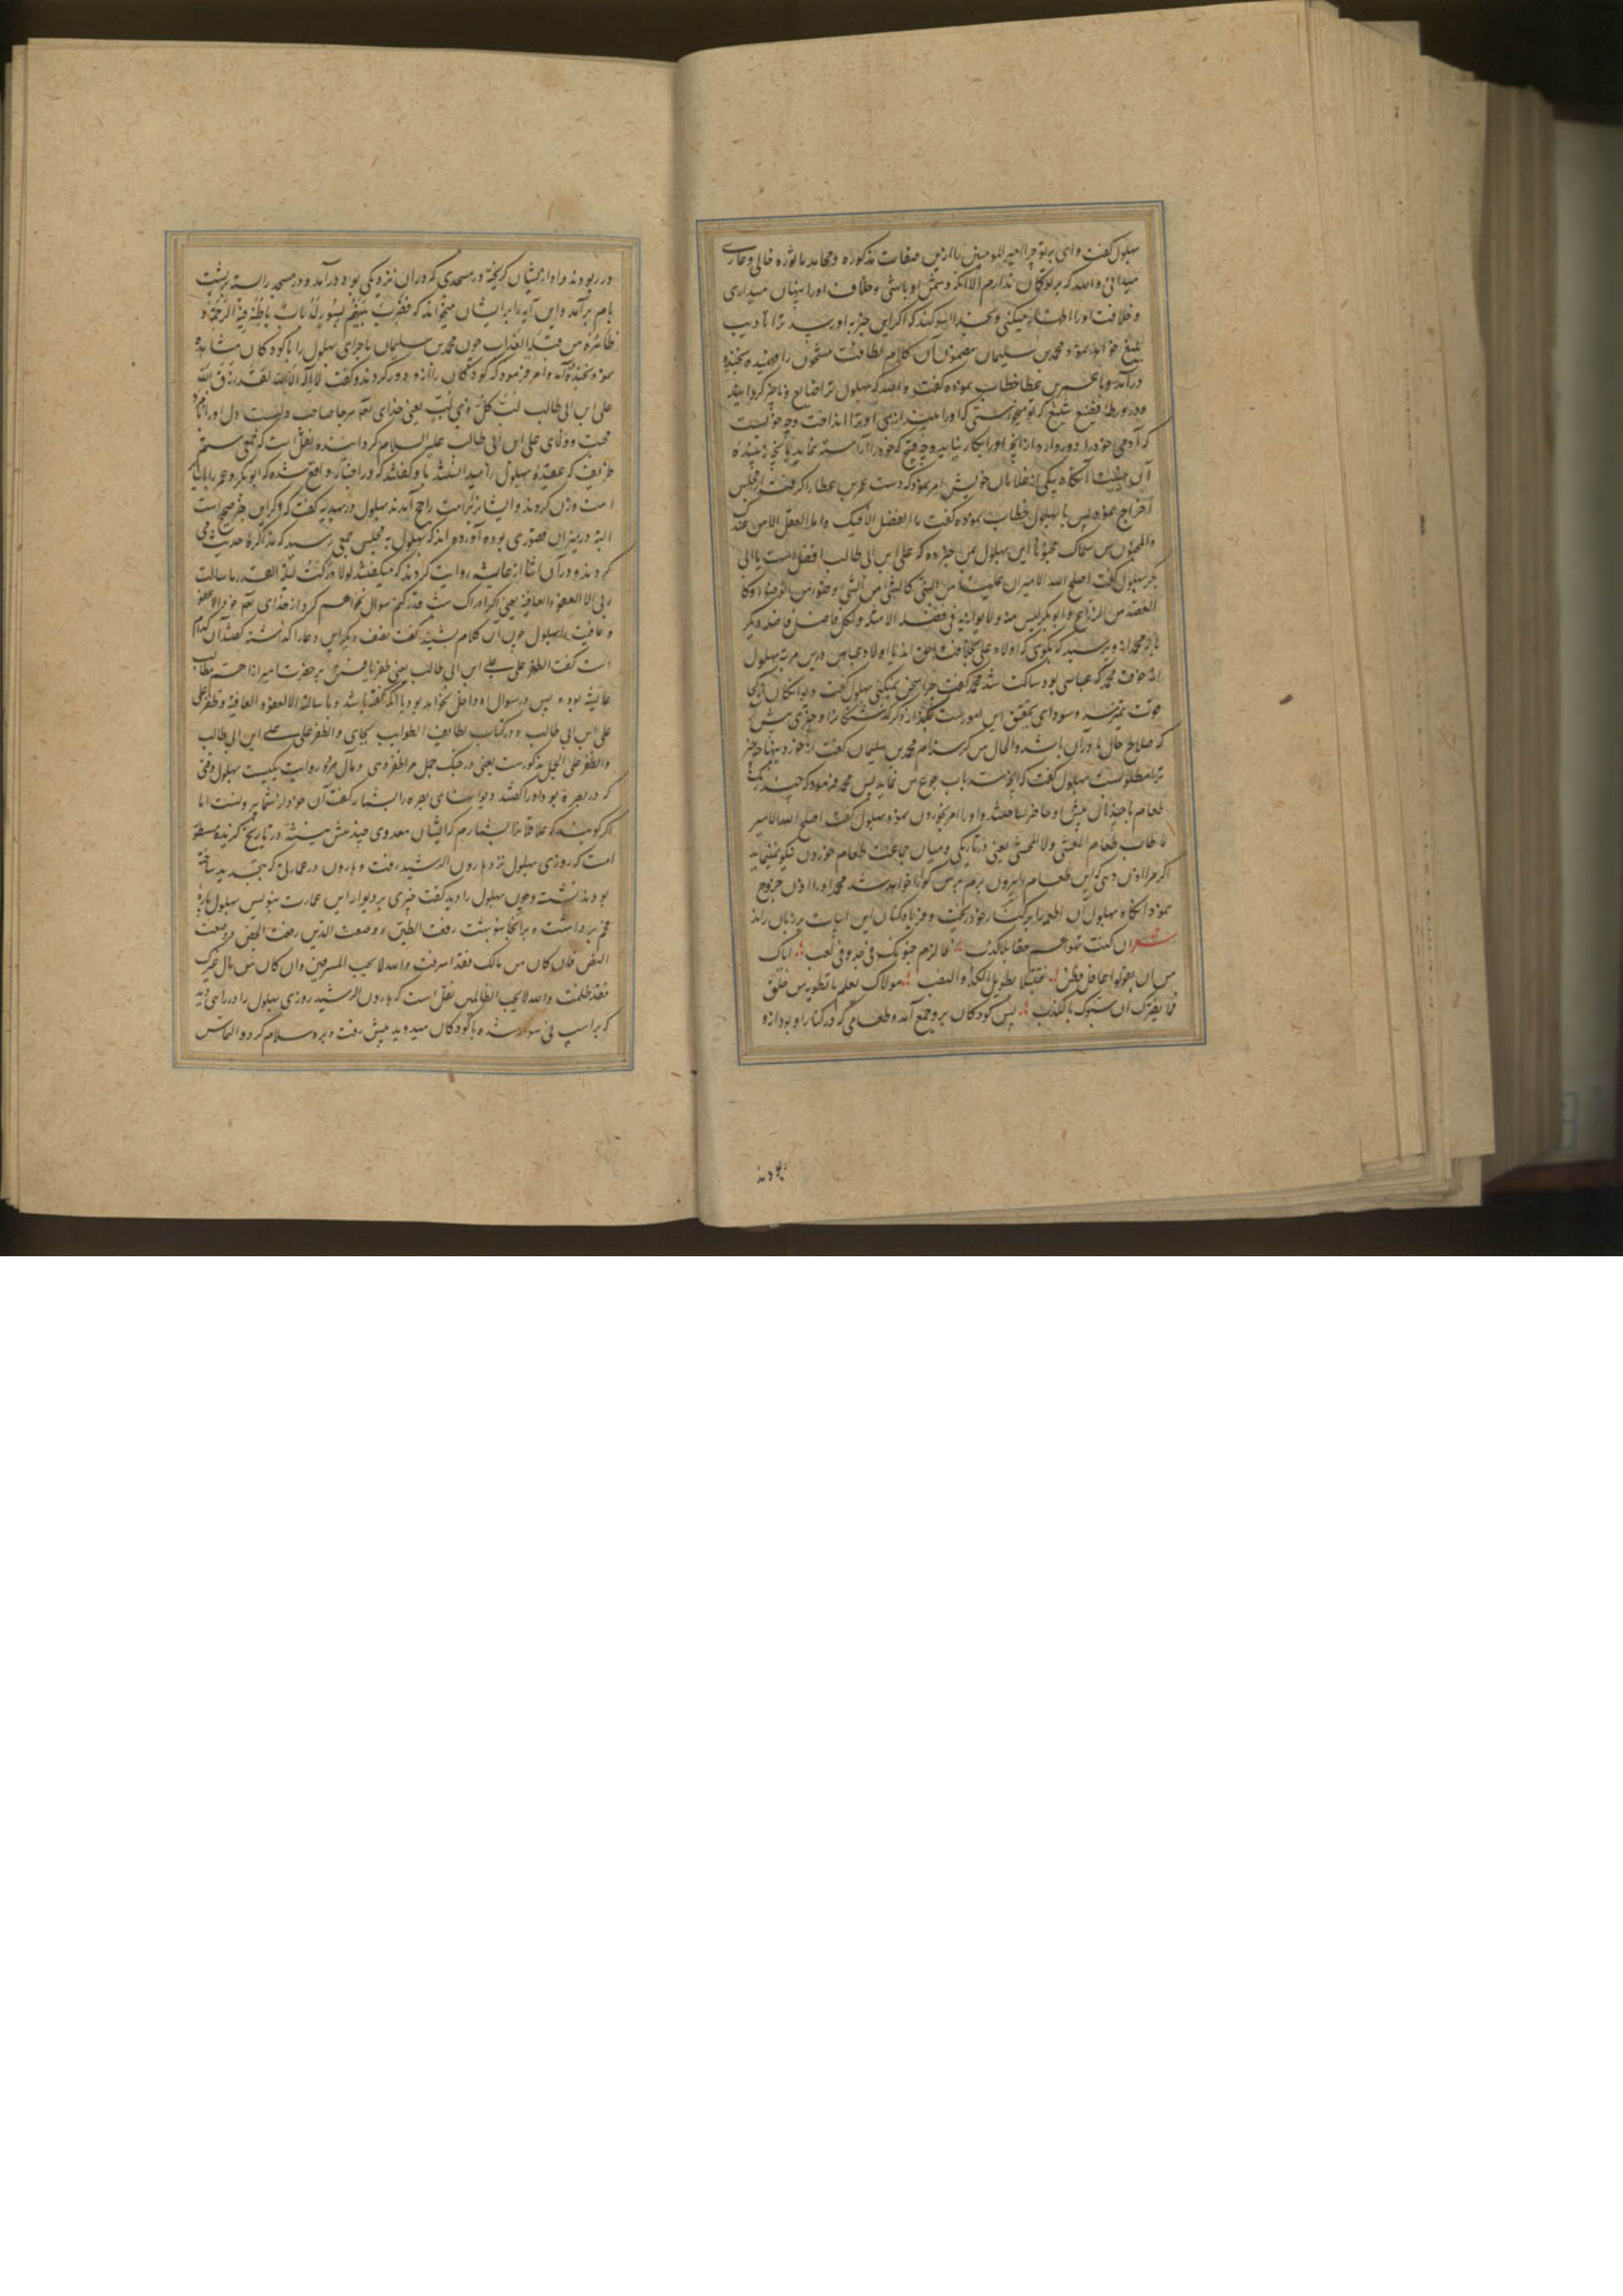 بهلول گفت وای بر تو چرا امیر المومنین را ازین صفات مذکوره و محامد ماثوره خالی و عاری
میدانی والله که بر تو گمان ندارم الا آنکه دشمن او باشی و خلافت اورا پنهان میداری
و خلافت اورا اظهار میکنی و بخدا سوگند که اگر این خبر به او رسد ترا تادیب
بلیغ خواهد نمود محمد بن سلیمان مضمون آن کلام لطافت مشحون را فهمیده بخنده
درآمد و با عمر بن عطا خطاب نموده گفت والله که بهلول ترا ضایع و ناچیز گردانید
و در ورطه فضیع که تو میخواستی که اورا اندازی او ترا انداخت و چه خوبست
که آدمی خود را دور دارد از آنچه اورا بکار نیاید و چه قبیح که خود را آراسته نماید بآنچه زیبنده
آن نیست آنگاه یکی از غلامان خویش امر نمود که دست عمر بن عطا را گرفته از مجلس
اخراج نمود پس با بهلول خطاب نموده گفت ما الفضل الا فیک و ما العقل الا من عندک
والمجنون من سماک مجنونا این بهلول بمن خبر ده که علی ابن ابی طالب افضل است یا ابی
بکر بهلول گفت اصلح الله الامیر ان علیا من النبی کالشی من الشی و کا
العضد من الذراع و ابو بکر لیس منه ولا یوازیه فی فضله الا مثله ولکل فاضل فاضله دیگر
باره محمد از و پرسید که بگوی که اولاد علی بخلافت احق اند یا اولاد عباس درین مرتبه بهلول
از خوف محمد که عباسی بود ساکت شد محمد گفت چرا سخن نمیکنی بهلول گفت دیوانگان را کجا
قوت تمیز و سودای تحقیق این امور است بگذار ذکر گذشتگان را و چیزی پیش آر
که صلاح حال ما در آن باشد والحال من گرسنه‌ام محمد بن سلیمان گفت از خوردنیها چه چیز
ترا مطلوبست بهلول گفت که آنچه سد باب جوع من نماید پس محمد فرمود که چند رنگ
طعام با چند نان پیش او حاضر ساختند و اورا امر بخوردن نمود بهلول گفت اصلح الله الامیر
ما طاب طعام المغشی ولا المحشی یعنی در تاریکی و میان جماعت طعام خوردن نیکو نمینماید
اگر مرا اذن دهی که این طعام را بیرون برم بر من گوارا خواهد شد محمد اورا اذن خروج
نمود آنگاه بهلول آن اطعمه را در کنار خود ریخت و فریاد کنان این ابیات بر زبان راند
شعر ان کنت تهواهم حقا بلا کذب ؛ فالزم جنونک فی جد وفی لعب ؛ ایاک
من ان یقولوا عاقل فطن ؛ فتبتلی بطویل الکد والنصب ؛ مولاک یعلم ما تطویه من خلق
فما یضرک ان سبوک بالکذب ؛ پس کودکان برو جمع آمدند و طعامی که در کنار او بود از و
ربودند
در ربودند و او از ایشان گریخته در مسجدی که در آن نزدیکی بود درآمد و در مسجد را بسته بر پشت
بام برآمد و این آیه را بر ایشان میخواند که فَضُرِبَ بَینَهُم بِسُورٍ لَهُ بابٌ باطِنُهُ فیهِ الرَّحمَةُ و
ظاهِرُهُ مِن قِبَلِهِ العَذاب چون محمد بن سلیمان ماجرای بهلول را با کودکان مشاهده
نمود بخنده آمد و امر فرمود که کودکان را از و دور کردند و گفت لا اله الا الله لقد رزق الله
علی ابن ابی طالب لب کل ذی لب یعنی خدای تعالی هر جا صاحب دلیست دل او را رام
محبت و ولای علی ابن ابی طالب علیه السلام گردانیده و نقل است که جمعی ستم
ظریف که عقیده بهلول را میدانستند با و گفتند که در اخبار واقع شده که ابو بکر و عمر را با
امت وزن کردند و ایشان بر امت راجح آمدند بهلول در بدیهه گفت که اگر این خبر صحیح است
البته در میزان قصوری بوده آورده اند که بهلول به مجلس جمعی رسید که مذاکره حدیث می
کردند و در آن اثنا از عایشه روایت کردند که میگفته لو ادرکت لیلة القدر ما سالت
ربی الا العفو والعافیة یعنی اگر ادراک شب قدر کنم سوال نخواهم کرد از خدای تعالی الا عفو
و عافیت را بهلول چون آن کلام شنید گفت نصف دیگر این دعا را گذاشته گفتند آن کدام
است گفت الظفر علی علی ابن ابی طالب یعنی ظفر یافتن بر حضرت امیر از اهم مطالب
عایشه بوده پس در سوال او داخل خواهد بود یا آنکه گفته باشد و ما سالته الا العفو والعافیة و ظفرا علی
علی ابن ابی طالب و در کتاب لطایف الطوایف بجای والظفر علی علی ابن ابی طالب
والظفر علی الجمل مذکورست یعنی در جنگ جمل مرا ظفر دهی و مآل هر دو روایت یکیست بهلول وقتی
که در بصره بود اورا گفتند دیوانهای بصره را بشمار گفت آن خود از شمار بیرونست اما
اگر گویند که عاقلانرا بشمارم که ایشان معدودی چند بیش نیستند در تاریخ گزیده مسطور
است که روزی بهلول نزد هارون الرشید رفت و هارون در عمارتی که بتجدید ساخته
بود نشست و چون بهلول را دید گفت چیزی بر دیوار این عمارت بنویس بهلول پاره
فحم برداشت و بر آنجا نوشت رفعت الطین و وضعت الدین رفعت الجص و وضعت
النص فان کان من مالک فقد اسرفت والله لا یحب المسرفین وان کان من مال غیرک
فقد ظلمت والله لا یحب الظالمین نقل است که هارون الرشید روزی بهلول را در راهی دید
که بر اسپ نی سوار شده با کودکان میدوید پیش رفت و برو سلام کرد و التماس